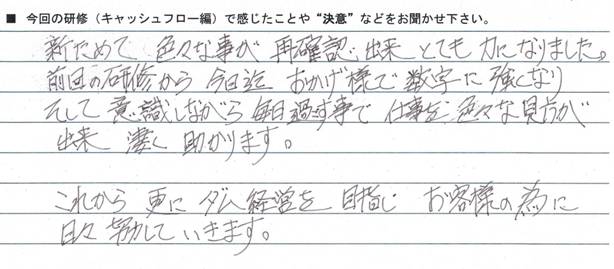 ■ 今回の研修（キャッシュフロー編）で感じたことや“決意”などをお聞かせ下さい。
新ためて 色々な事が 再確認 出来 とても 力になりました。
前回の研修から 今日迄 おかげ様で 数字に 強くなり
そして 意識しながら 毎日過す事で 仕事を 色々な見方が
出来 凄く 助かります。
これから 更に ダム経営を 目指し お客様の為に
日々 努力して いきます。